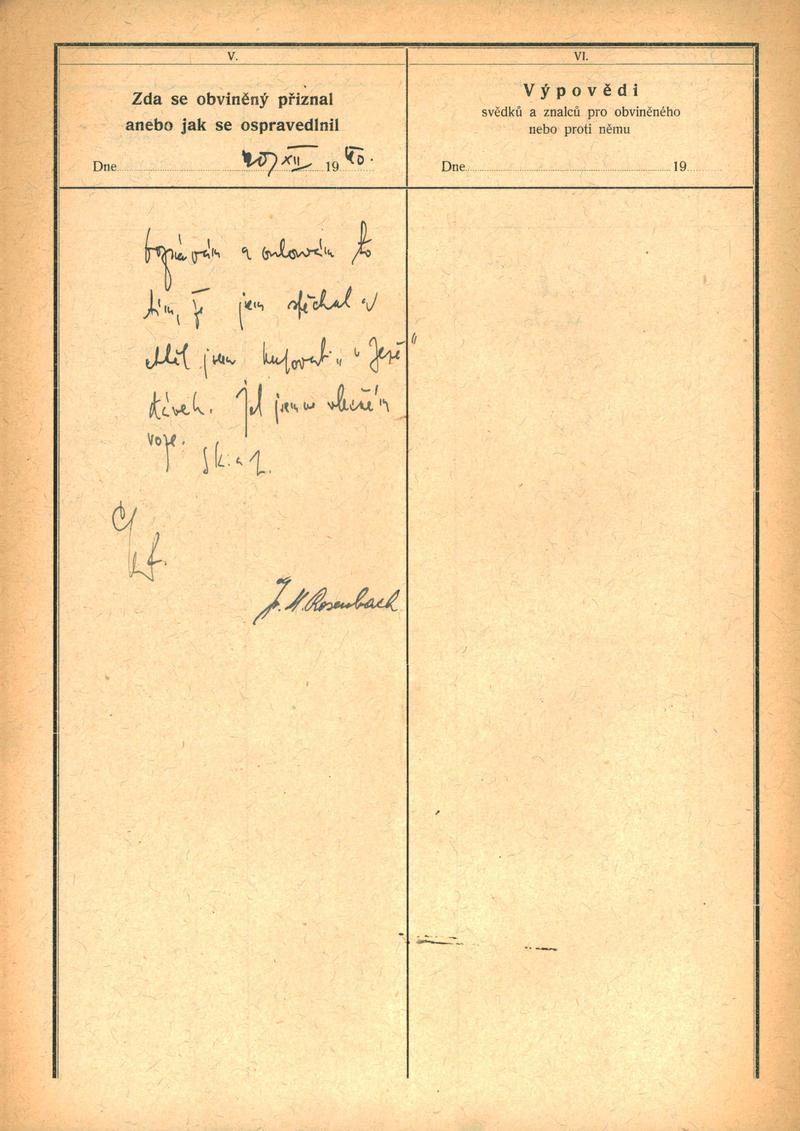 V.
Zda se obviněný přiznal
anebo jak se ospravedlnil
Dne 20/XII 1940.
doznávám a omlouvám to
tím, že jsem spěchal a
chtěl jsem kupovati
dávek. Jel jsem ve vlečném
voze.
Sk. a J.
J. M. Rosenbach
VI.
Výpovědi
svědků a znalců pro obviněného
nebo proti němu
Dne 19